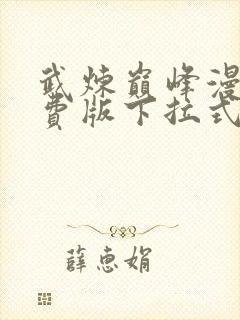 武炼巅峰漫
费版下拉式
薛惠娟